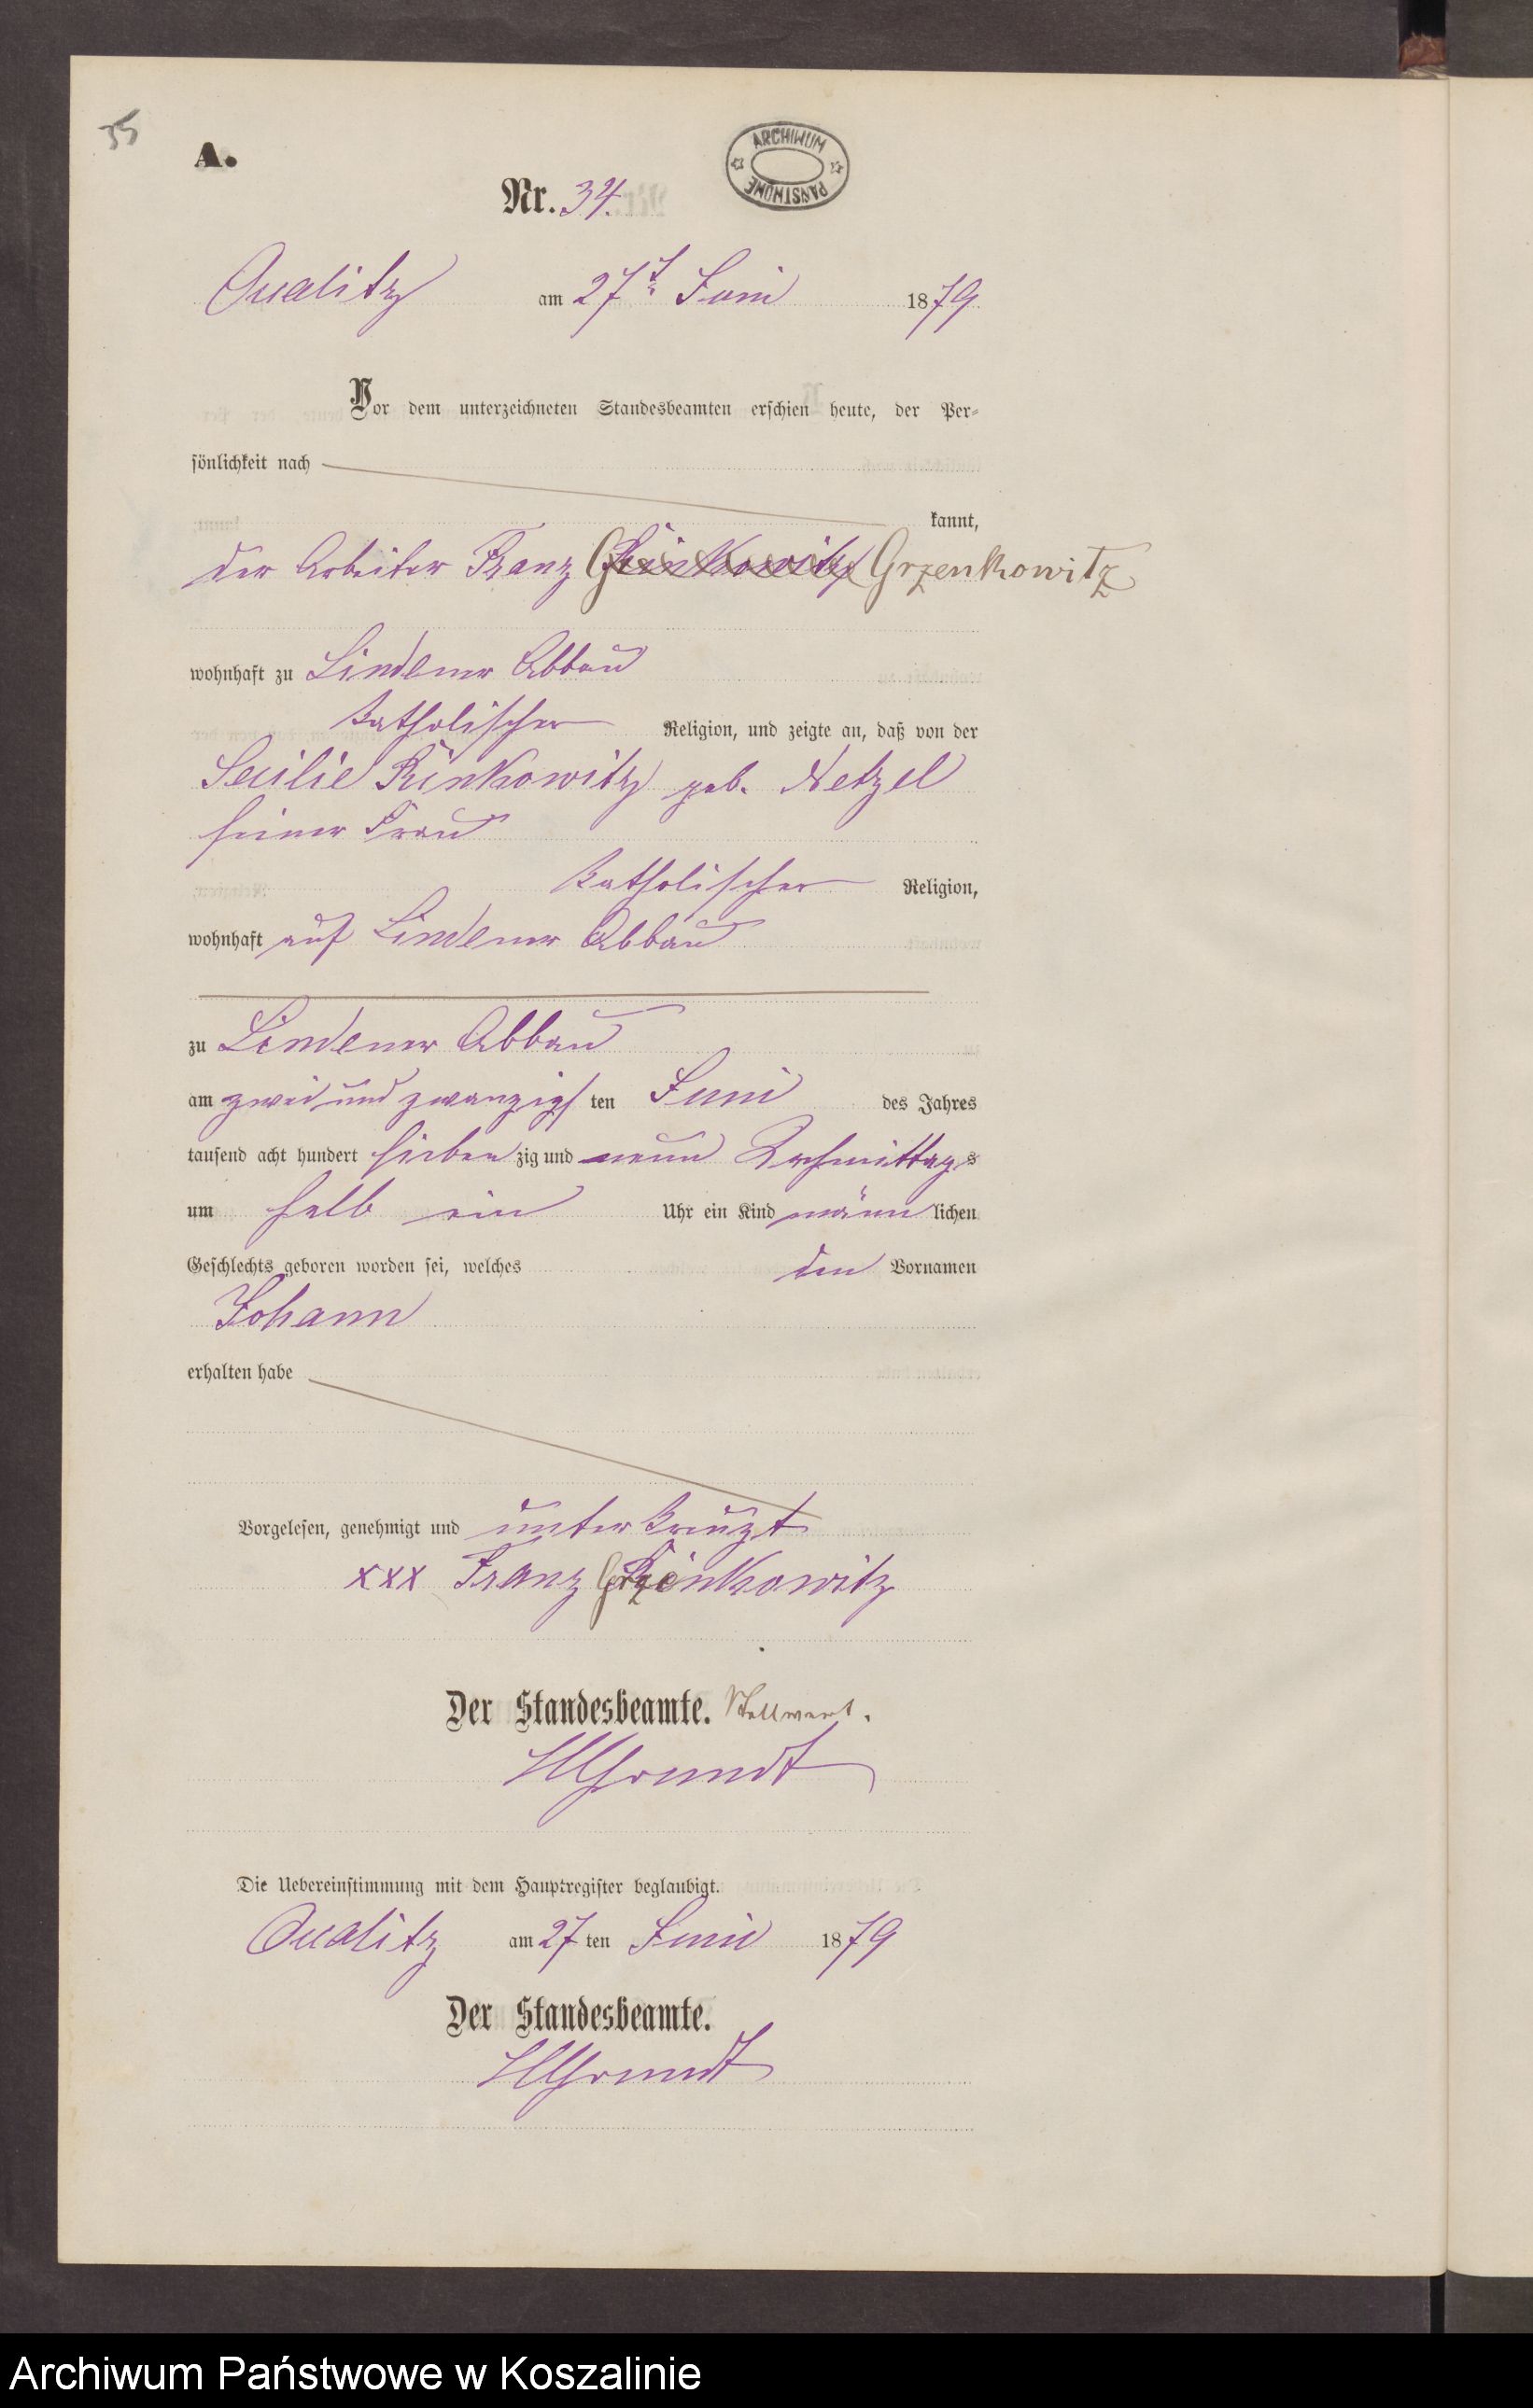 35
A.
ARCHIWUM PAŃSTWOWE
Nr. 34.
Qualitz am 27t. Juni 1879.
Vor dem unterzeichneten Standesbeamten erschien heute, der Per-
sönlichkeit nach
kannt,
der Arbeiter Franz Grzenkowitz
wohnhaft zu Lindener Abbau
katholischer Religion, und zeigte an, daß von der
Secilie Rinkowitz geb. Netzel
seiner Frau
katholischer Religion,
wohnhaft auf Lindener Abbau
zu Lindener Abbau
am zwei und zwanzigsten Juni des Jahres
tausend acht hundert siebenzig und neun Nachmittags
um halb ein Uhr ein Kind männlichen
Geschlechts geboren worden sei, welches den Vornamen
Johann
erhalten habe
Vorgelesen, genehmigt und unterkreuzt
xxx Franz Grzenkowitz
Der Standesbeamte. Stellvert.
Die Uebereinstimmung mit dem Hauptregister beglaubigt.
Qualitz am 27 ten Juni 1879
Der Standesbeamte.
Archiwum Państwowe w Koszalinie